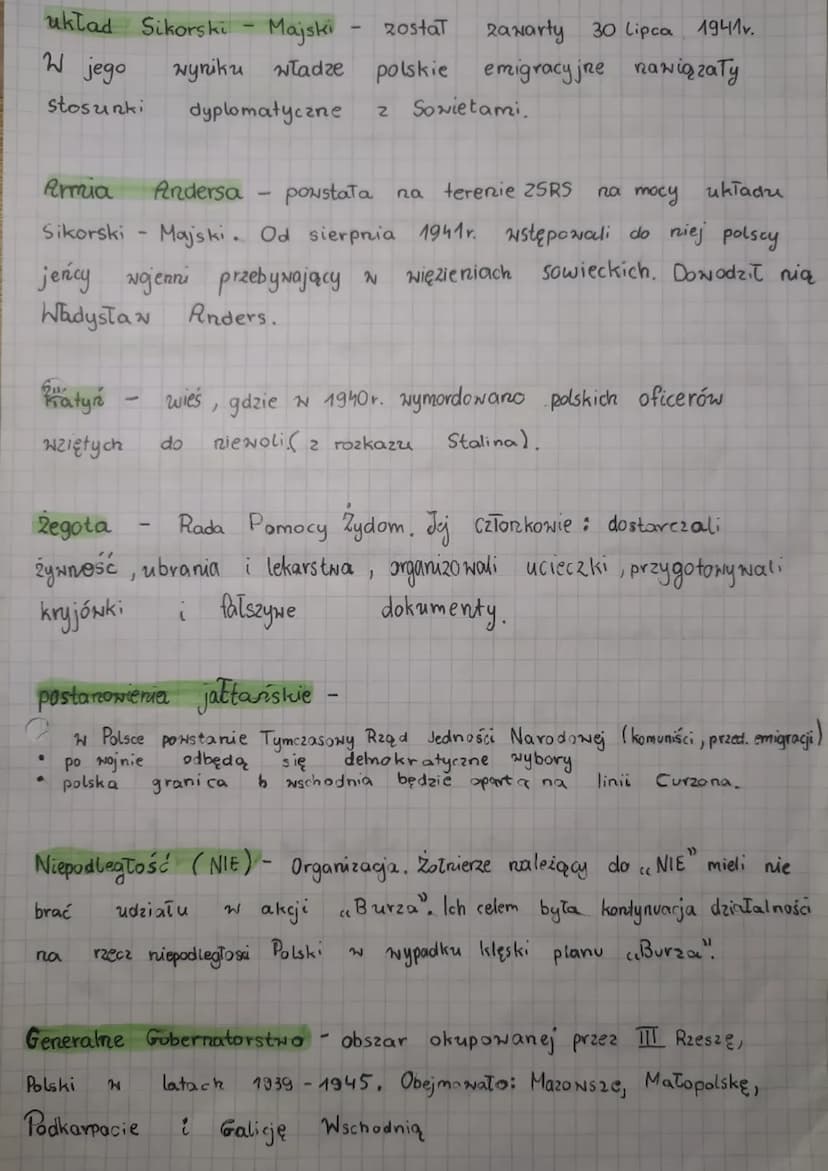 układ Sikorski - Majski - został zawarty 30 lipca 1941r.
W jego wyniku władze polskie emigracyjne nawiązały
stosunki dyplomatyczne z Sowietami.
Armia Andersa - powstała na terenie ZSRS na mocy układu
Sikorski - Majski. Od sierpnia 1941r. wstępowali do niej polscy
jeńcy wojenni przebywający w więzieniach sowieckich. Dowodził nią
Władysław Anders.
Katyń - wieś, gdzie w 1940r. wymordowano polskich oficerów
wziętych do niewoli (z rozkazu Stalina).
Żegota - Rada Pomocy Żydom. Jej członkowie: dostarczali
żywność, ubrania i lekarstwa, organizowali ucieczki, przygotowywali
kryjówki i fałszywe dokumenty.
postanowienia jałtańskie -
w Polsce powstanie Tymczasowy Rząd Jedności Narodowej (komuniści, przed. emigracji)
• po wojnie odbędą się demokratyczne wybory
• polska granica wschodnia będzie oparta na linii Curzona.
Niepodległość (NIE) - Organizacja. Żołnierze należący do „NIE” mieli nie
brać udziału w akcji „Burza”. Ich celem była kontynuacja działalności
na rzecz niepodległości Polski w wypadku klęski planu „Burza”.
Generalne Gubernatorstwo - obszar okupowanej przez III Rzeszę,
Polski w latach 1939-1945. Obejmowało: Mazowsze, Małopolskę,
Podkarpacie i Galicję Wschodnią